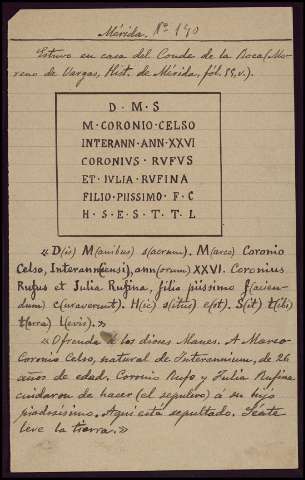 Mérida. Nº 140
Estuvo en casa del Conde de la Roca (Mo-
reno de Vargas, Hist. de Mérida, fól. 55, v.).
D · M · S
M · CORONIO · CELSO
INTERANN · ANN · XXVI
CORONIVS · RVFVS
ET · IVLIA · RVFINA
FILIO · PIISSIMO · F · C
H · S · E · S · T · T · L
« D(is) M(anibus) s(acrum). M(arco) Coronio
Celso, Interann(iensi), ann(orum) XXVI. Coronius
Rufus et Julia Rufina, filio piissimo f(acien-
dum) c(uraverunt). H(ic) s(itus) e(st). S(it) t(ibi)
t(erra) l(evis). »
« Ofrenda á los dioses Manes. A Marco
Coronio Celso, natural de Interannium, de 26
años de edad. Coronio Rufo y Julia Rufina
cuidaron de hacer (el sepulcro) á su hijo
piadosísimo. Aquí está sepultado. Séate
leve la tierra. »